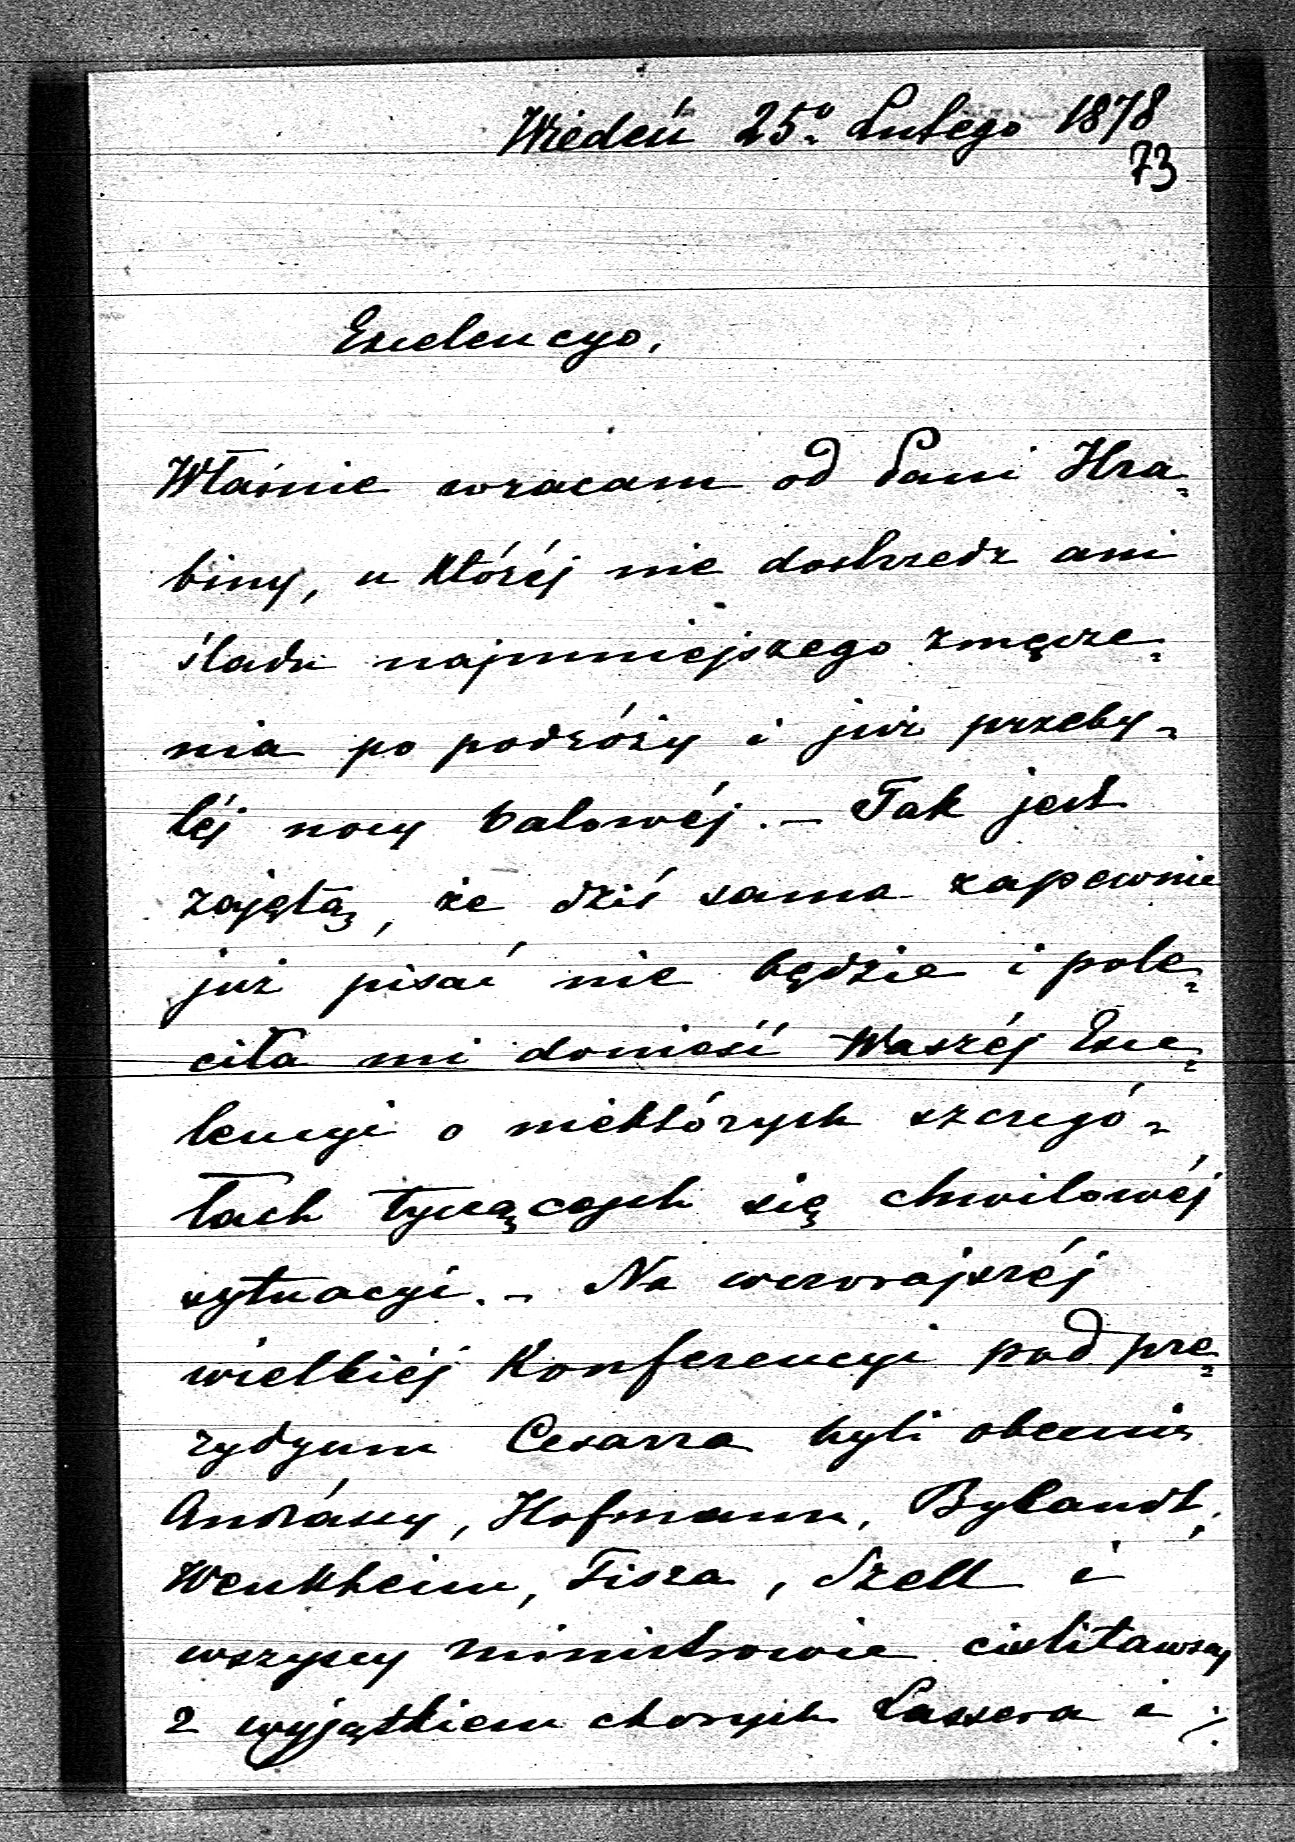 Wiedeń 25º Lutego 1878
73
Excelencyo,
Właśnie wracam od Pani Hra-
biny, u któréj nie dostrzedz ani
śladu najmniejszego zmęcze-
nia po podróży i już przeby-
téj nocy balowéj. – Tak jest
zajętą, że dziś sama zapewnie
już pisać nie będzie i pole-
ciła mi donieść Waszéj Exce-
lencyi o niektórych szczegó-
łach tyczących się chwilowéj
sytuacyi. – Na wczorajszéj
wielkiéj Konferencyi pod pre-
zydyum Cesarza byli obecnie
Andrássy, Hofmann, Bylandt,
Wenkheim, Tisza, Szell i
wszyscy ministrowie cislitawscy
z wyjątkiem chorych Lassera i ./.